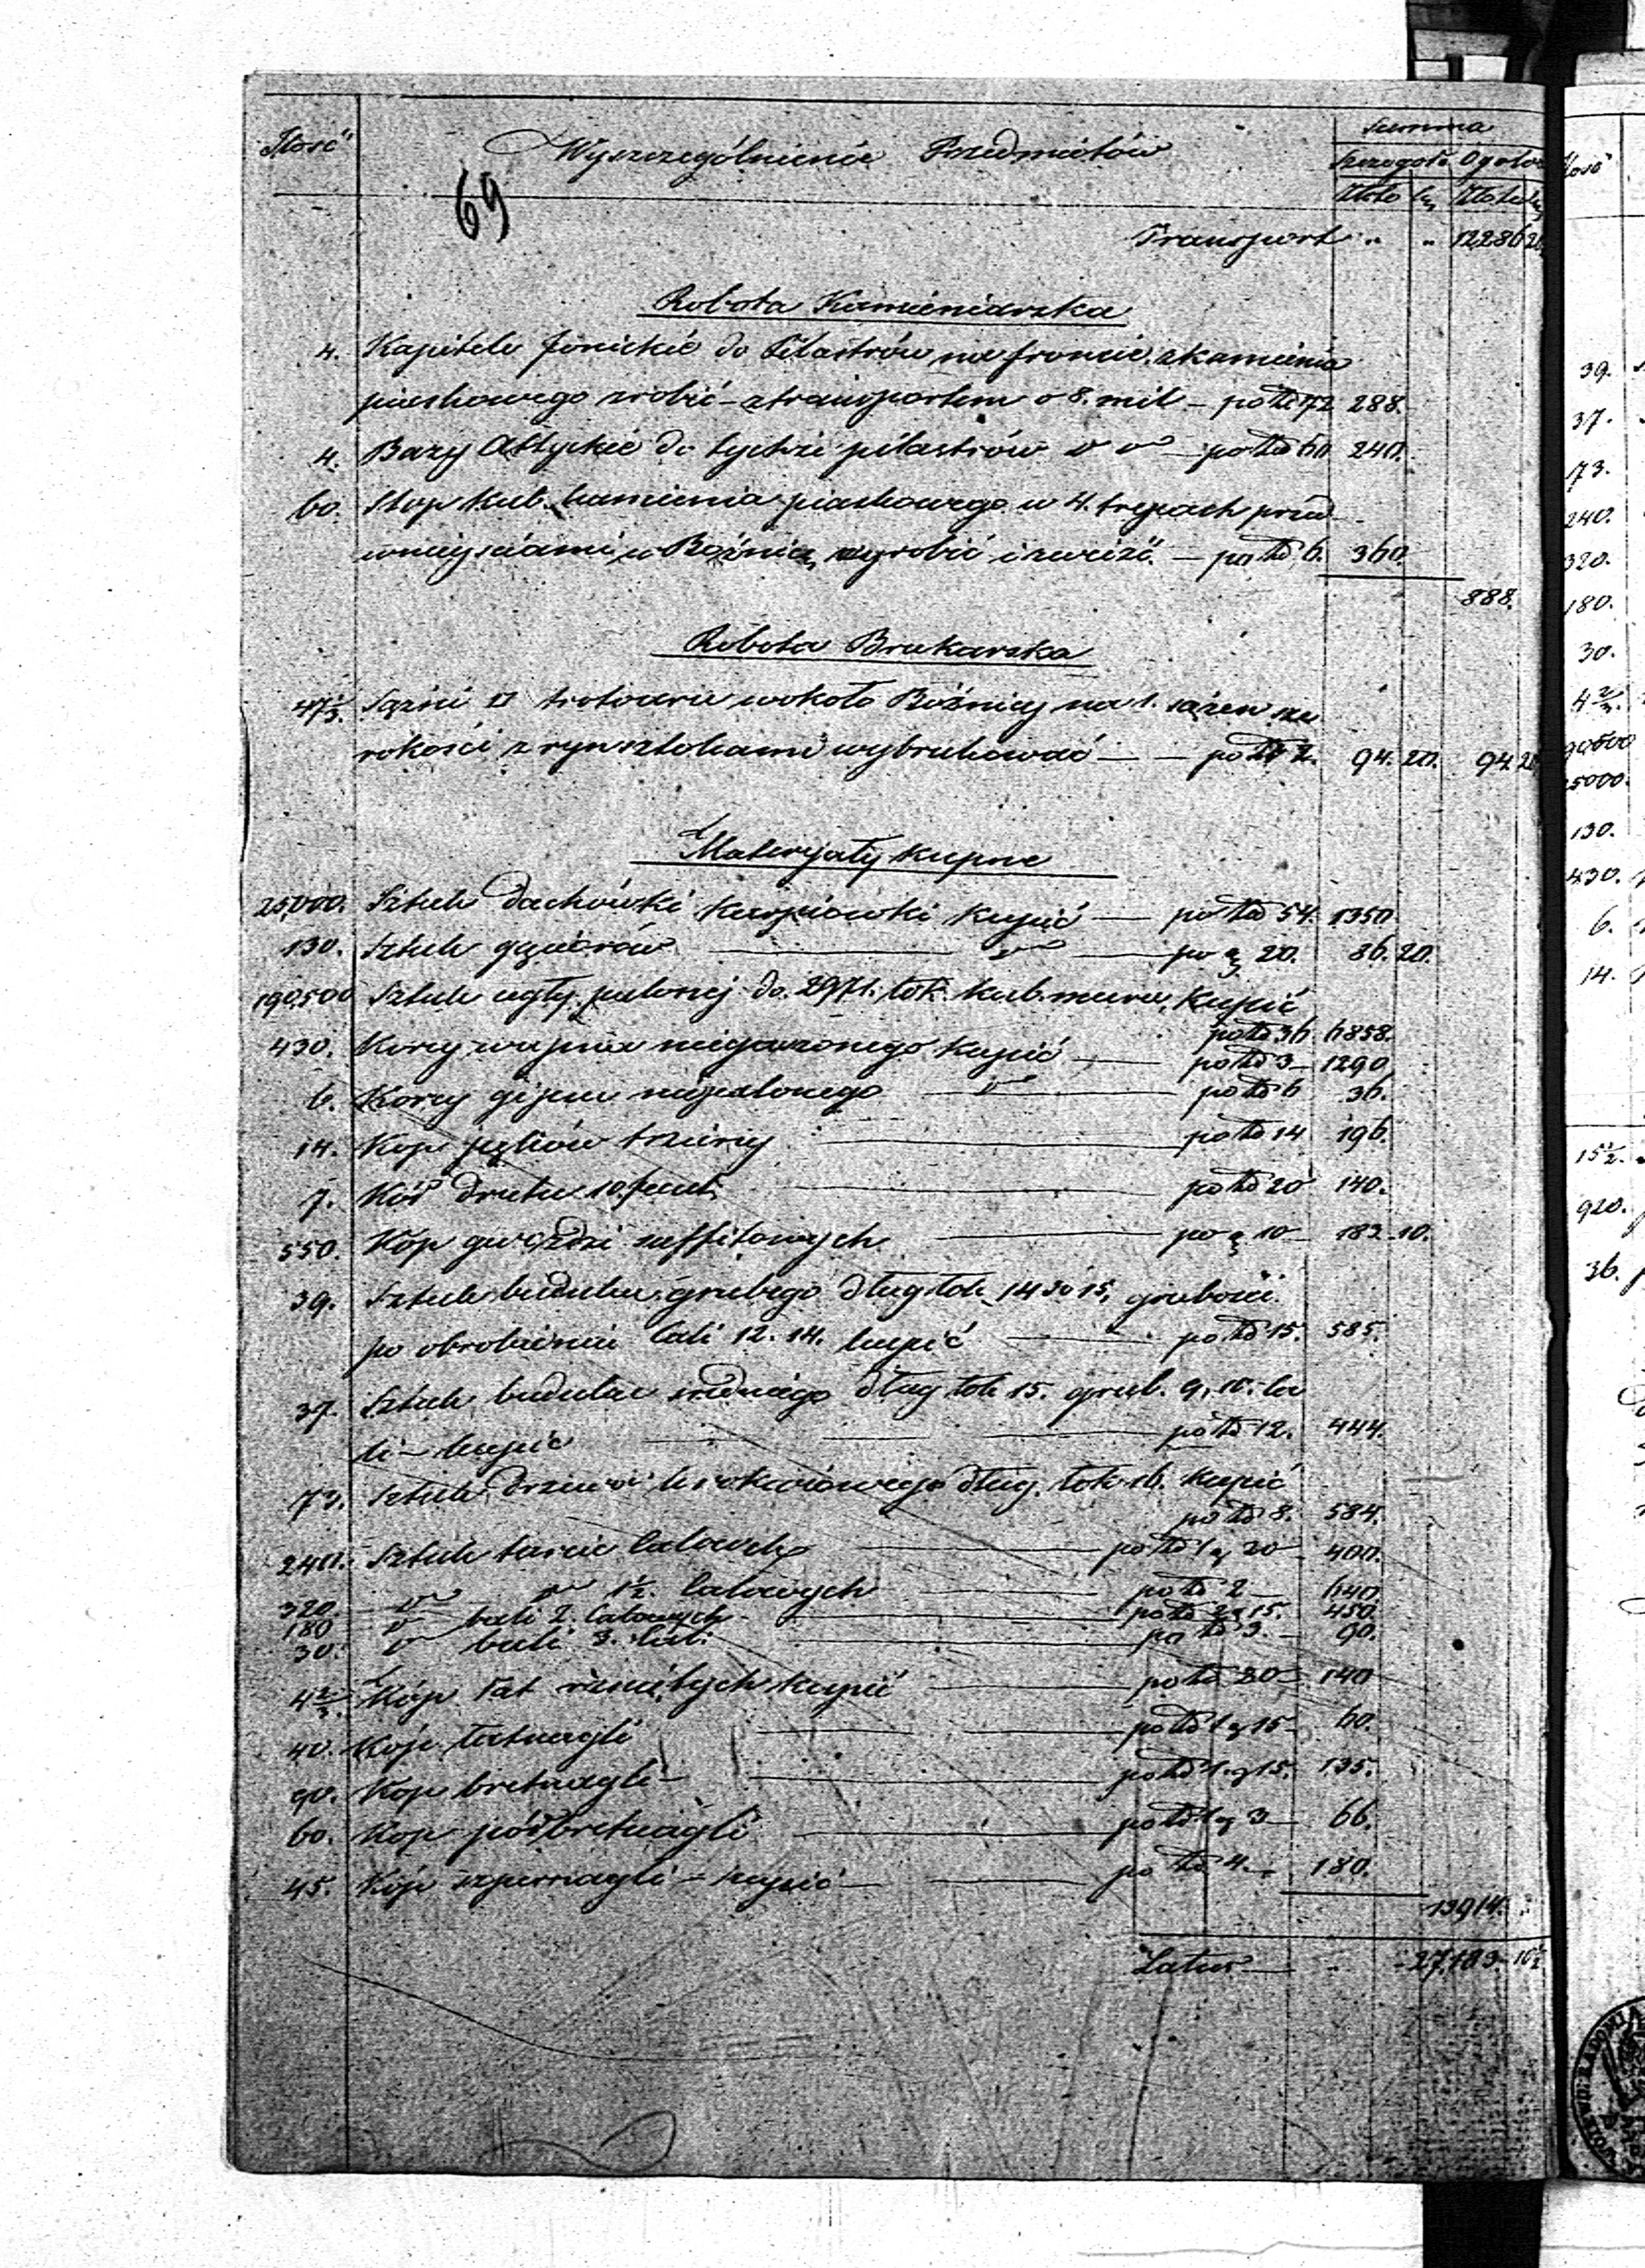 Ilość Wyszczególnienie Przedmiotów Summa
Szczegoło Ogoło
Złote gr Złote gr
69
Transport " " 12286 20
Robota Kamieniarska
4. Kapitele Jonickie do Pilastrów na froncie z kamienia
piaskowego zrobić z transportem o 8. mil – po zł 72 288.
4. Bazy Attyckie do tychże pilastrów v v – po zł 60 240.
60. Stop kub. kamienia piaskowego w 4. przed
wniyściami w Bożnicy wyrobić i zwieźć. – po zł 6. 360.
888.
Robota Brukarska
47 1/3. Sążni □ trotoaru wokoło Bożnicy na 1. sążeń sze
rokości z rynsztokami wybrukować — po zł 2. 94. 20. 94 20
Materyały kupne
25,000. Sztuk dachówki karpiowki kupić — po zł 54. 1350.
130. Sztuk gąsiorów — v — po gr 20. 86. 20.
190,500 Sztuk cegły palonej do 2971. łok. kub. muru, kupić
po zł 36 6858.
430. Korcy wapna niegaszonego kupić — po zł 3 – 1290.
6. Korcy gipsu niepalonego — v — po zł 6 36.
14. Kop pęków trzciny — po zł 14 196.
7. Kół drutu 10. funt. — po zł 20 140.
550. Kop gwoździ suffitowych — po gr 10 – 183. 10.
39. Sztuk budulcu grubego dług łok. 14 do 15, grubości
po obrobieniu Cali 12. 14. kupić — po zł 15. 585.
37. Sztuk budulcu średniego dług łok 15. grub. 9, 10. ca
li – kupić — po zł 12. 444.
73. Sztuk drzewa krokwiowego dług. łok. 16. kupić
po zł 8. 584.
240. Sztuk tarcic calowych — po zł 1 gr 20 400.
320. v v 1 1/2. calowych — po zł 2 – 640.
180 v bali 2. calowych — po zł 2 gr 15. 450.
30. v bali 3. cali. — po zł 3. – 90.
4 2/3. Kop łat rżniętych kupić — po zł 30 – 140
40. Kop łatnagli — po zł 1 gr 15 – 60.
90. Kop bretnagli – — po zł 1. gr 15. 135.
60. Kop półbretnagli — po zł 1 gr 3 — 66.
45. Kop szpernagli – kupić — po zł 4. – 180.
13914.
Latus — " 27,183 – 10 1/2